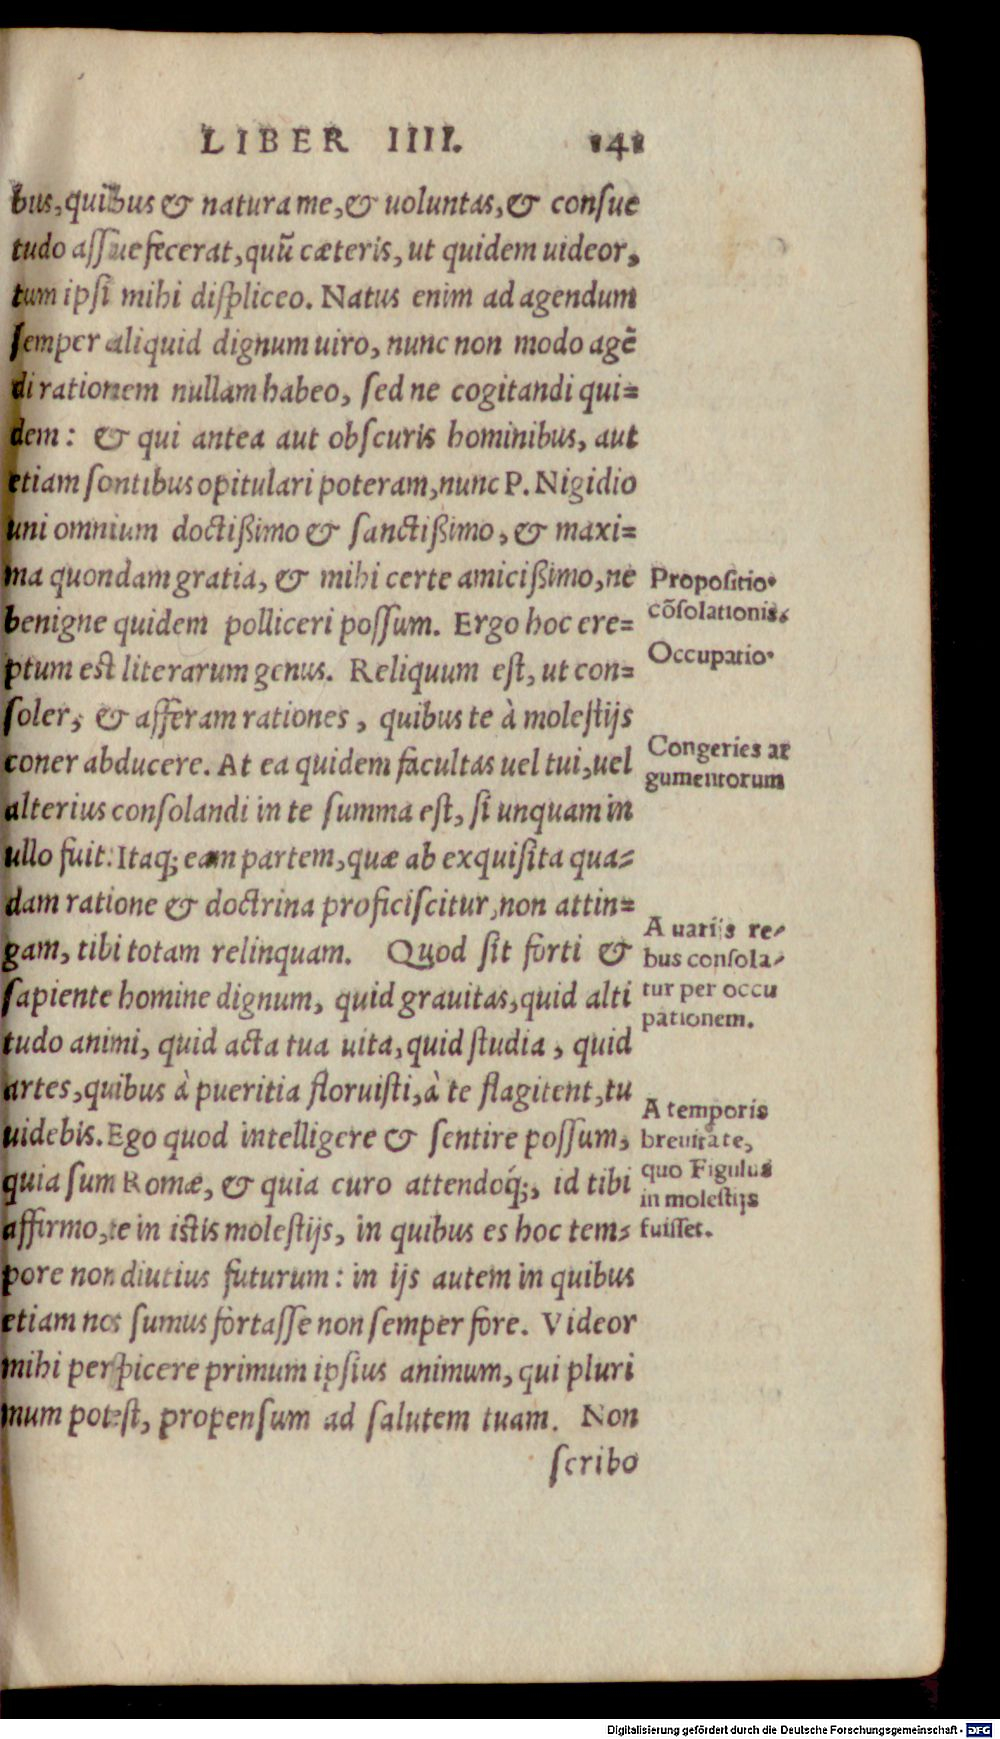 LIBER IIII. 141
bus, quibus & natura me, & uoluntas, & consue
tudo assuefecerat, quũ cæteris, ut quidem uideor,
tum ipsi mihi displiceo. Natus enim ad agendum
semper aliquid dignum uiro, nunc non modo agẽ
di rationem nullam habeo, sed ne cogitandi qui=
dem: & qui antea aut obscuris hominibus, aut
etiam sontibus opitulari poteram, nunc P. Nigidio
uni omnium doctißimo & sanctißimo, & maxi=
ma quondam gratia, & mihi certe amicißimo, ne
benigne quidem polliceri possum. Ergo hoc ere=
ptum est literarum genus. Reliquum est, ut con=
soler, & afferam rationes, quibus te à molestijs
coner abducere. At ea quidem facultas uel tui, uel
alterius consolandi in te summa est, si unquam in
ullo fuit. Itaq; eam partem, quæ ab exquisita qua=
dam ratione & doctrina proficiscitur, non attin=
gam, tibi totam relinquam. Quod sit forti &
sapiente homine dignum, quid grauitas, quid alti
tudo animi, quid acta tua uita, quid studia, quid
artes, quibus à pueritia floruisti, à te flagitent, tu
uidebis. Ego quod intelligere & sentire possum,
quia sum Romæ, & quia curo attendoq́;, id tibi
affirmo, te in istis molestijs, in quibus es hoc tem=
pore non diutius futurum: in ijs autem in quibus
etiam nos sumus fortasse non semper fore. Videor
mihi perspicere primum ipsius animum, qui pluri
mum potest, propensum ad salutem tuam. Non
scribo
Propositio
cõsolationis.
Occupatio
Congeries ar
gumentorum
A uarijs re=
bus consola=
tur per occu
pationem.
A temporis
breuitate,
quo Figulus
in molestijs
fuisset.
Digitalisierung gefördert durch die Deutsche Forschungsgemeinschaft - DFG